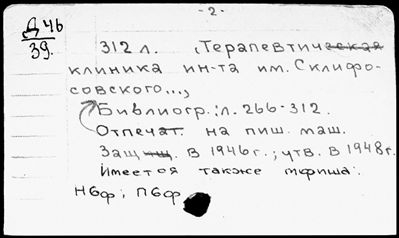 - 2 -
Д 46
39.
312 л. (Терапевтическая
клиника ин-та им. Склифо-
совского...,
Библиогр.: л. 266-312.
Отпечат. на пиш. маш.
Защ. в 1946г.; утв. в 1948г.
Имеется также мфиша.
Н6ф; П6ф